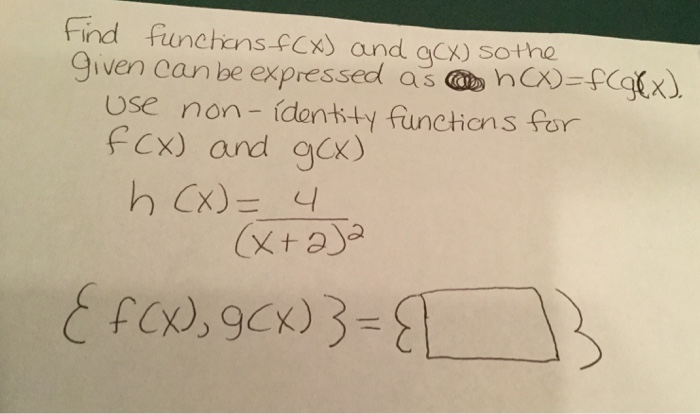 Find functions f(x) and g(x) so the
given can be expressed as h(x)=f(g(x).
Use non-identity functions for
f(x) and g(x)
h(x)= 4
(x+2)2
{f(x), g(x)}={ }